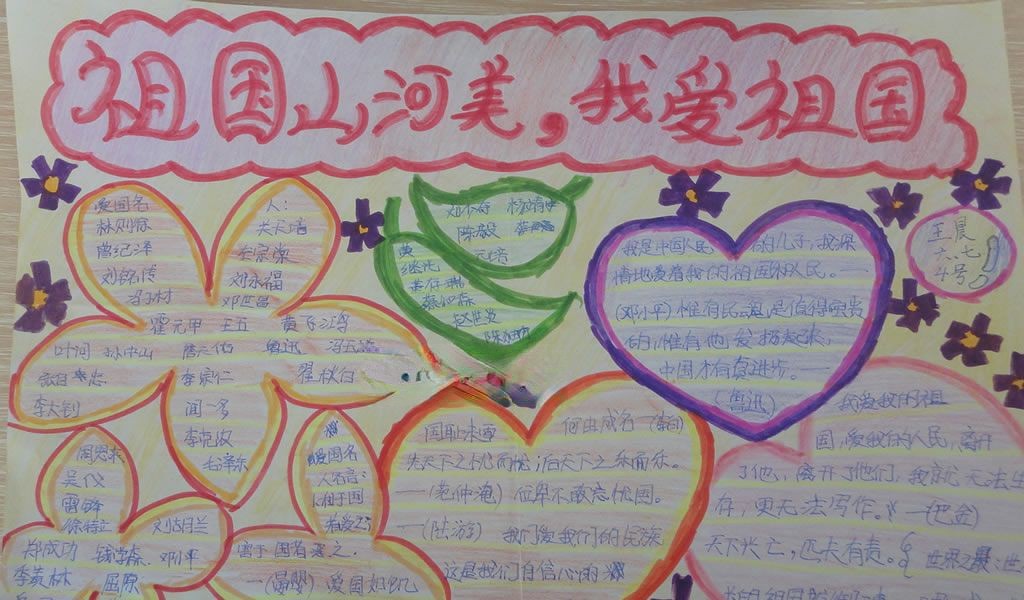 祖国山河美,我爱祖国
爱国名
人:
林则徐
关天培
曾纪泽
左宗棠
刘铭传
刘永福
冯子材
邓世昌
霍元甲 王五 黄飞鸿
叶问 孙中山 詹天佑 鲁迅 冯玉祥
张自忠
李宗仁
瞿秋白
李大钊
闻一多
李克农
毛泽东
邓小平
杨靖宇
黄
继光
董存瑞
我是中国人民的儿子,我深
情地爱着我们的祖国和人民。——
(邓小平)惟有民魂是值得宝贵
的,惟有他发扬起来,
中国才有真进步。——
(鲁迅)
王晨
六、七
4号
周恩来
吴仪
雷锋
徐特立
刘胡兰
郑成功 钱学森 邓小平
李黄林 屈原
爱国名
人名言:
利于国
者爱之
害于国者恶之。
—(晏婴)爱国如饥
国耻未雪 何由成名—(李白)
先天下之忧而忧,后天下之乐而乐。
——(范仲淹) 位卑不敢忘忧国。
——(陆游) 我们爱我们的民族
这是我们自信心的
我爱我的祖
国,爱我的人民,离开
了他,离开了他们,我就无法生
存,更无法写作。——(巴金)
天下兴亡,匹夫有责。